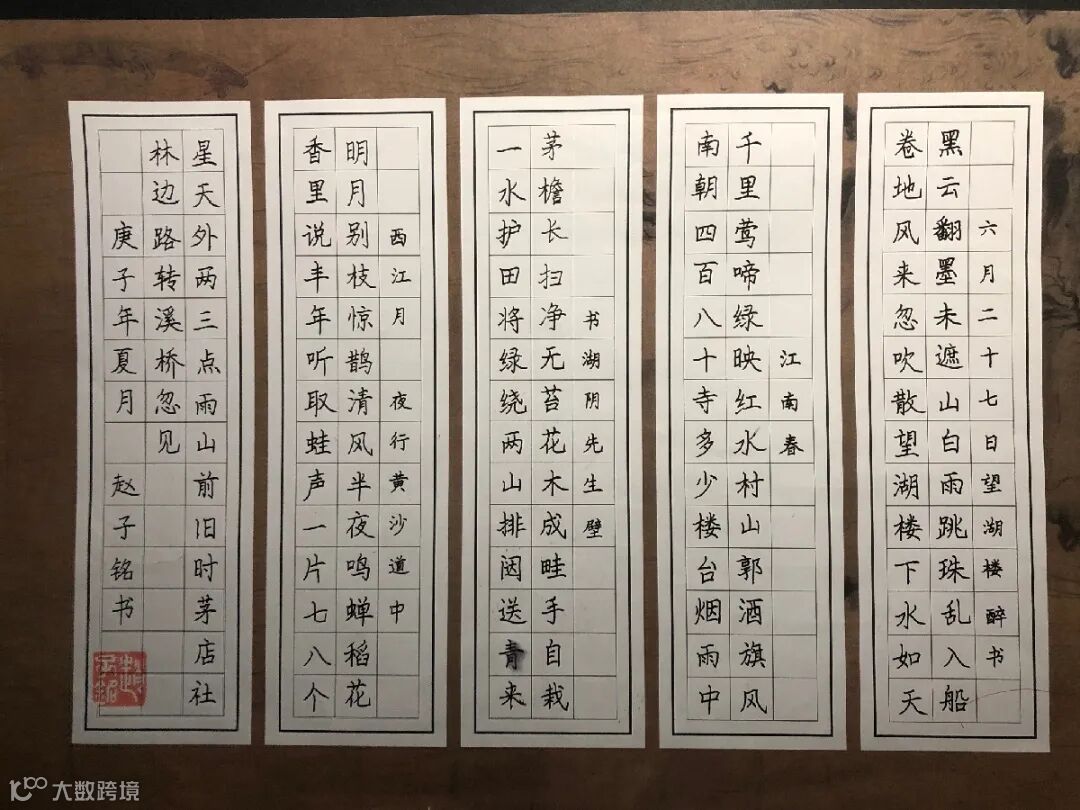 六月二十七日望湖楼醉书
黑云翻墨未遮山白雨跳珠乱入船
卷地风来忽吹散望湖楼下水如天
江南春
千里莺啼绿映红水村山郭酒旗风
南朝四百八十寺多少楼台烟雨中
书湖阴先生壁
茅檐长扫净无苔花木成畦手自栽
一水护田将绿绕两山排闼送青来
西江月 夜行黄沙道中
明月别枝惊鹊清风半夜鸣蝉稻花
香里说丰年听取蛙声一片七八个
星天外两三点雨山前旧时茅店社
林边路转溪桥忽见
庚子年夏月 赵子铭书
大数跨境